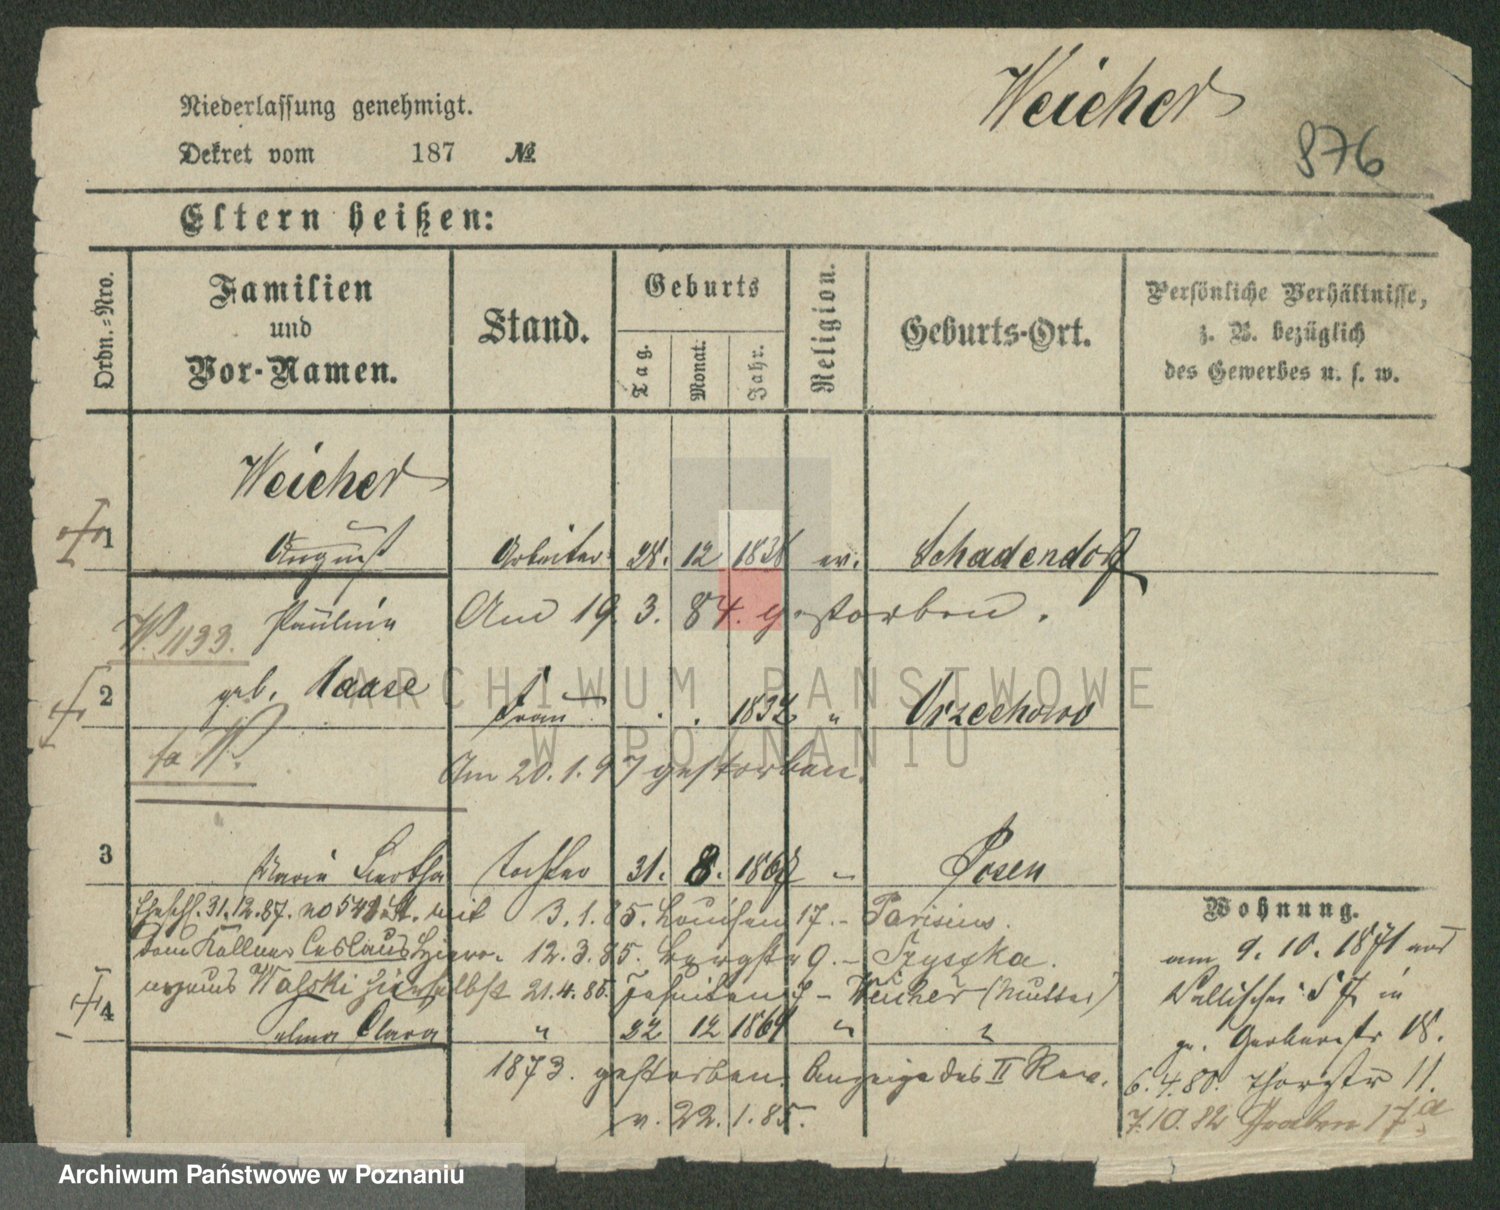 Weicher
876
Niederlassung genehmigt.
Dekret vom 187 №
Eltern heißen:
Ordn.-Nro.
Familien
und
Vor-Namen.
Stand.
Geburts
Tag.
Monat.
Jahr.
Religion.
Geburts-Ort.
Persönliche Verhältnisse,
z. B. bezüglich
des Gewerbes u. s. w.
Weicher
1 August Arbeiter 28. 12 ev. Schadendorf
W. 1133. Pauline Am 19. 3. 84. gestorben.
2 geb. Haase Frau . . " Orzechowo
Am 20. 1. 97 gestorben.
3 Marie Bertha Tochter 31. 8. Posen
Eheschl. 31. 12. 87. mit 3. 1. 85. 17. - Parisius.
dem Kellner Ceslaus 12. 3. 85. Bergstr 9. -
Walski hierselbst 21. 4. 85. Jesuiten - Weicher (Mutter)
4 Clara " 22 12 " "
1873. gestorben. Anzeige des II Rev.
v. 22. 1. 85.
Wohnung.
am 9. 10. 1871 aus
Wallischei in
Gerberstr 18.
6. 4. 80. Thorstr 11.
7. 10. 82 Graben 17a
ARCHIWUM PAŃSTWOWE
W POZNANIU
Archiwum Państwowe w Poznaniu